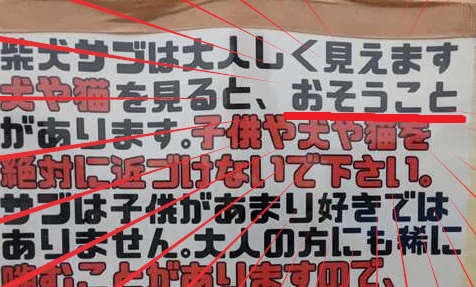 柴犬サブは大人しく見えます
犬や猫を見ると、おそうこと
があります。子供や犬や猫を
絶対に近づけないで下さい。
サブは子供があまり好きでは
ありません。大人の方にも稀に
噛むことがありますので、